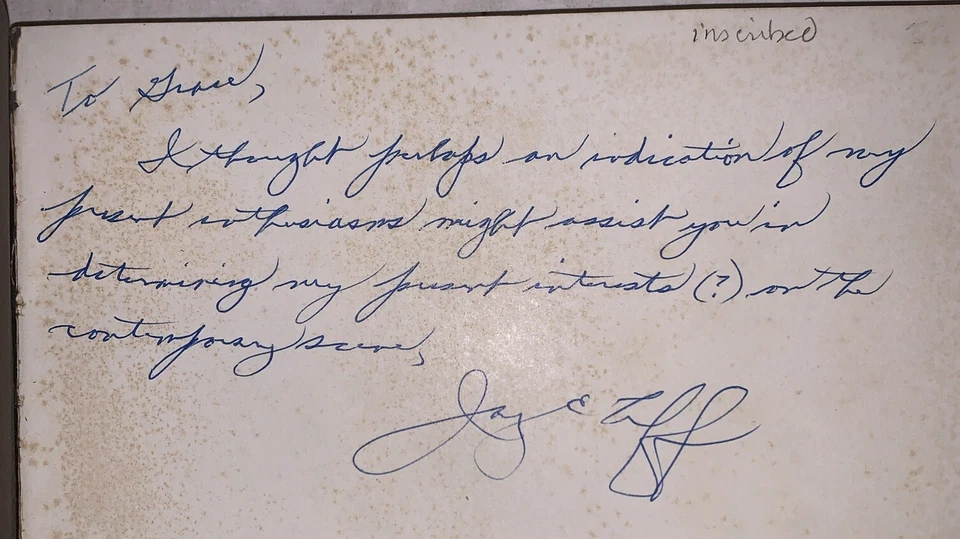 inscribed
To Grace,
I thought perhaps an indication of my
present enthusiasms might assist you in
determining my present interests (?) on the
contemporary scene,
Jay E